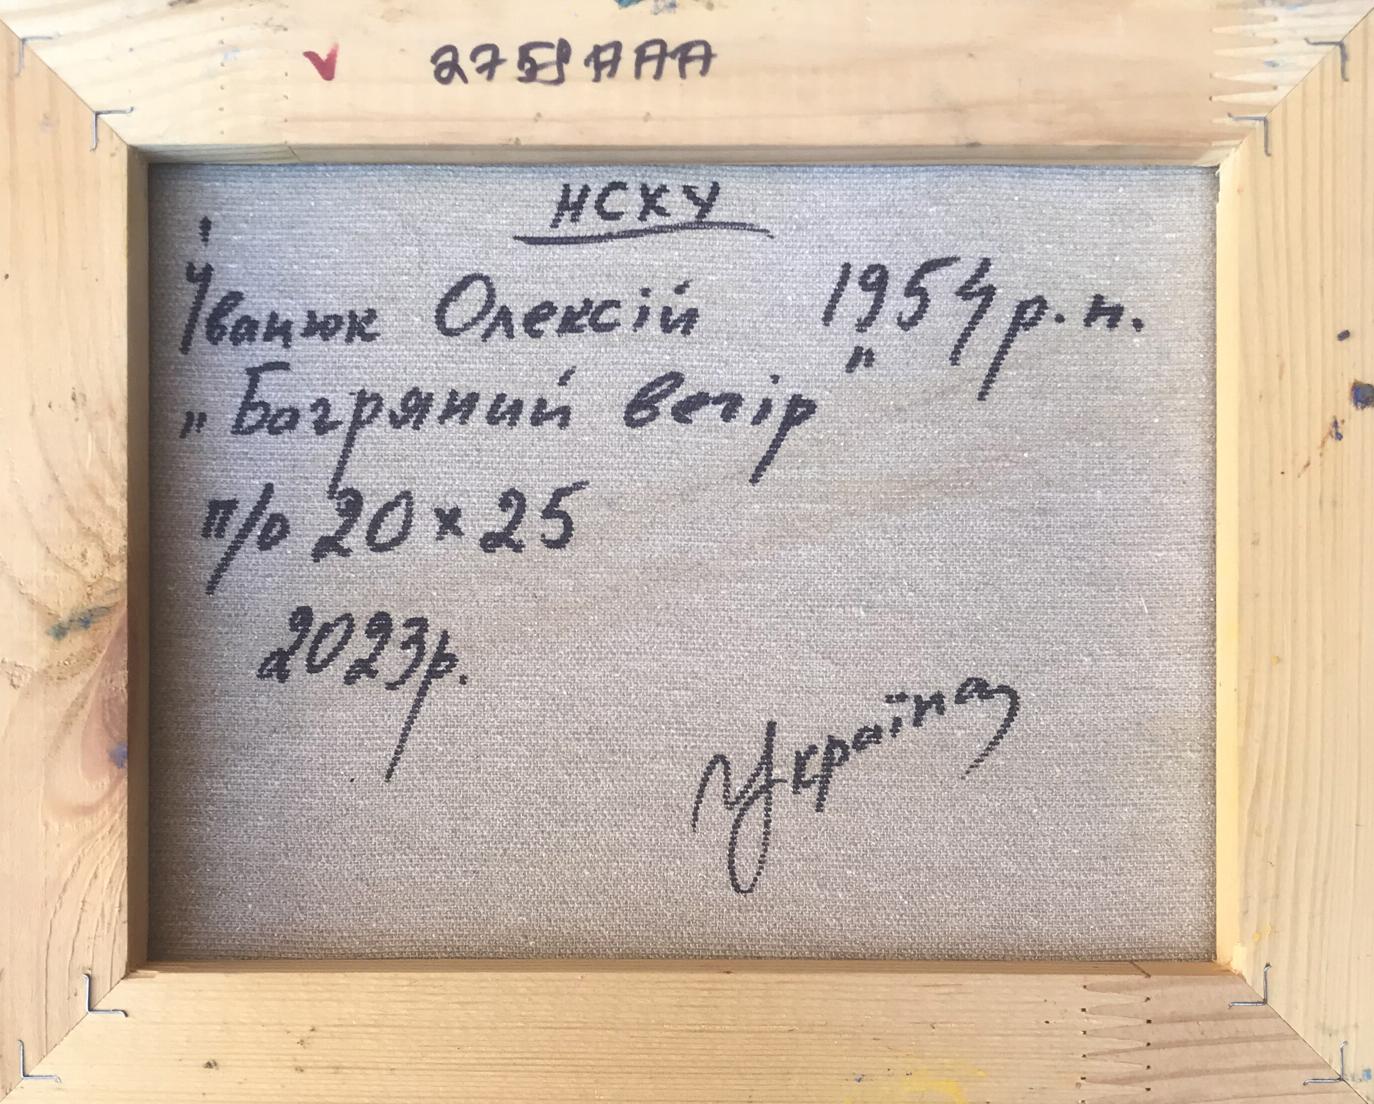 НСХУ
Іванюк Олексій 1954 р.н.
„Багряний вечір"
п/о 20 x 25
2023р.
Україна